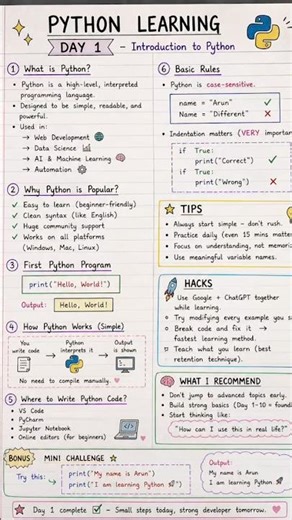 PYTHON LEARNING
DAY 1 - Introduction to Python
1 What is Python?
• Python is a high-level, interpreted
programming language.
• Designed to be simple, readable, and
powerful.
• Used in:
→ Web Development
→ Data Science
→ AI & Machine Learning
→ Automation
2 Why Python is Popular?
✓ Easy to learn (beginner-friendly)
✓ Clean syntax (like English)
✓ Huge community support
✓ Works on all platforms
(Windows, Mac, Linux)
3 First Python Program
print("Hello, World!")
Output: Hello, World!
4 How Python Works (Simple)
You write code → Python interprets it → Output is shown
No need to compile manually.
5 Where to Write Python Code?
• VS Code
• PyCharm
• Jupyter Notebook
• Online editors (for beginners)
6 Basic Rules
• Python is case-sensitive.
name = "Arun" ✓
Name = "Different" ✗
• Indentation matters (VERY importan
if True:
print("Correct") ✓
if True:
print("Wrong") ✗
TIPS
• Always start simple - don't rush.
• Practice daily (even 15 mins matter
• Focus on understanding, not memori
• Use meaningful variable names.
HACKS
Use Google + ChatGPT together
while learning.
Try modifying every example you s
Break code and fix it →
fastest learning method.
Teach what you learn (best
retention technique).
WHAT I RECOMMEND
• Don't jump to advanced topics early.
• Build strong basics (Day 1-10 = foun
• Start thinking like:
"How can I use this in real life?"
BONUS MINI CHALLENGE
Try this: print("My name is Arun")
print("I am learning Python 🚀")
Output:
My name is Arun
I am learning Python 🚀
Day 1 complete ✓ - Small steps today, strong developer tomorrow.